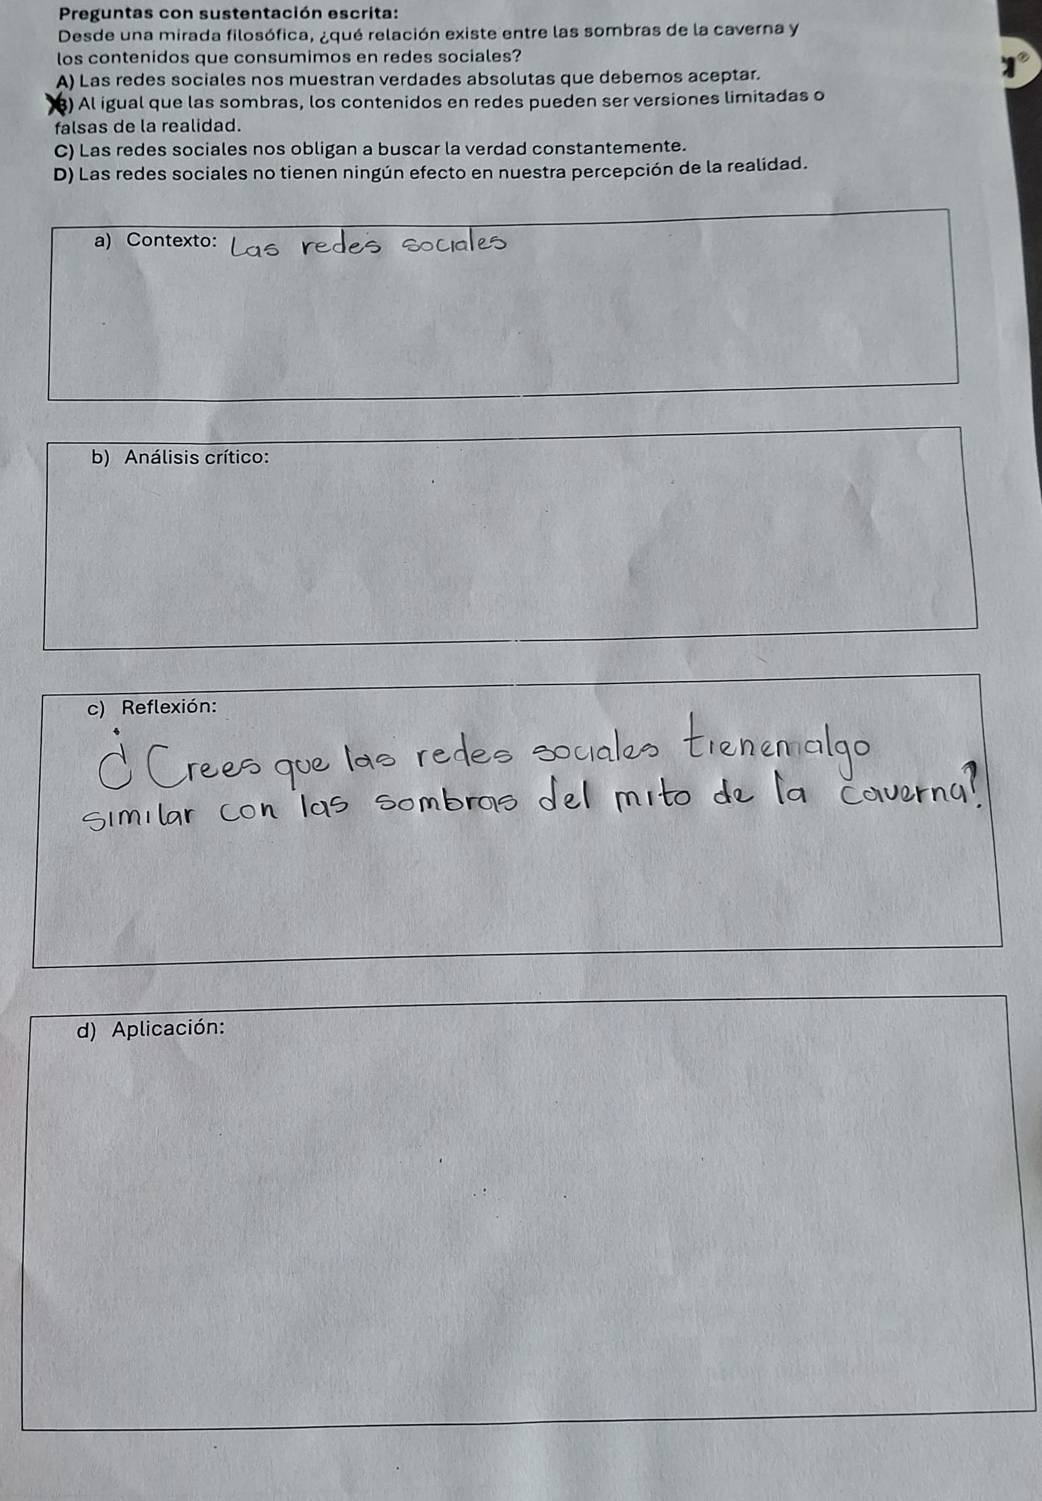 Preguntas con sustentación escrita:
Desde una mirada filosófica, ¿qué relación existe entre las sombras de la caverna y
los contenidos que consumimos en redes sociales?
A) Las redes sociales nos muestran verdades absolutas que debemos aceptar.
B) Al igual que las sombras, los contenidos en redes pueden ser versiones limitadas o
falsas de la realidad.
C) Las redes sociales nos obligan a buscar la verdad constantemente.
D) Las redes sociales no tienen ningún efecto en nuestra percepción de la realidad.
a) Contexto: Las redes sociales
b) Análisis crítico:
c) Reflexión:
¿Crees que las redes sociales tienen algo
similar con las sombras del mito de la caverna?
d) Aplicación: